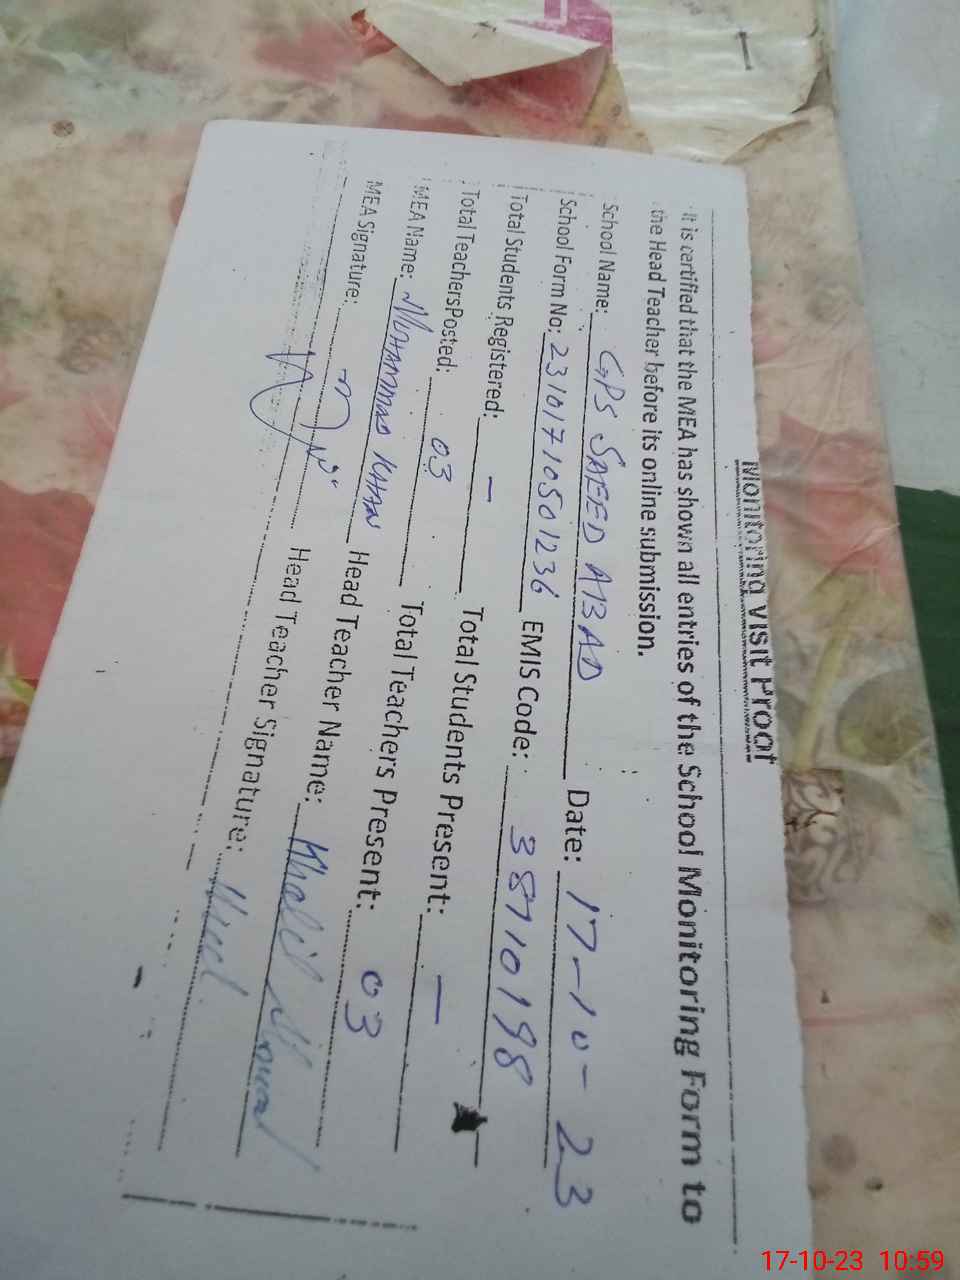 Monitoring Visit Proof
It is certified that the MEA has shown all entries of the School Monitoring Form to
the Head Teacher before its online submission.
School Name: GPS SAEED ABAD Date: 17-10-23
School Form No: 23101710501236 EMIS Code: 38710198
Total Students Registered: — Total Students Present: —
Total Teachers Posted: 03 Total Teachers Present: 03
MEA Name: MOHAMMAD KHAN Head Teacher Name: Khalil
MEA Signature: Head Teacher Signature:
17-10-23 10:59